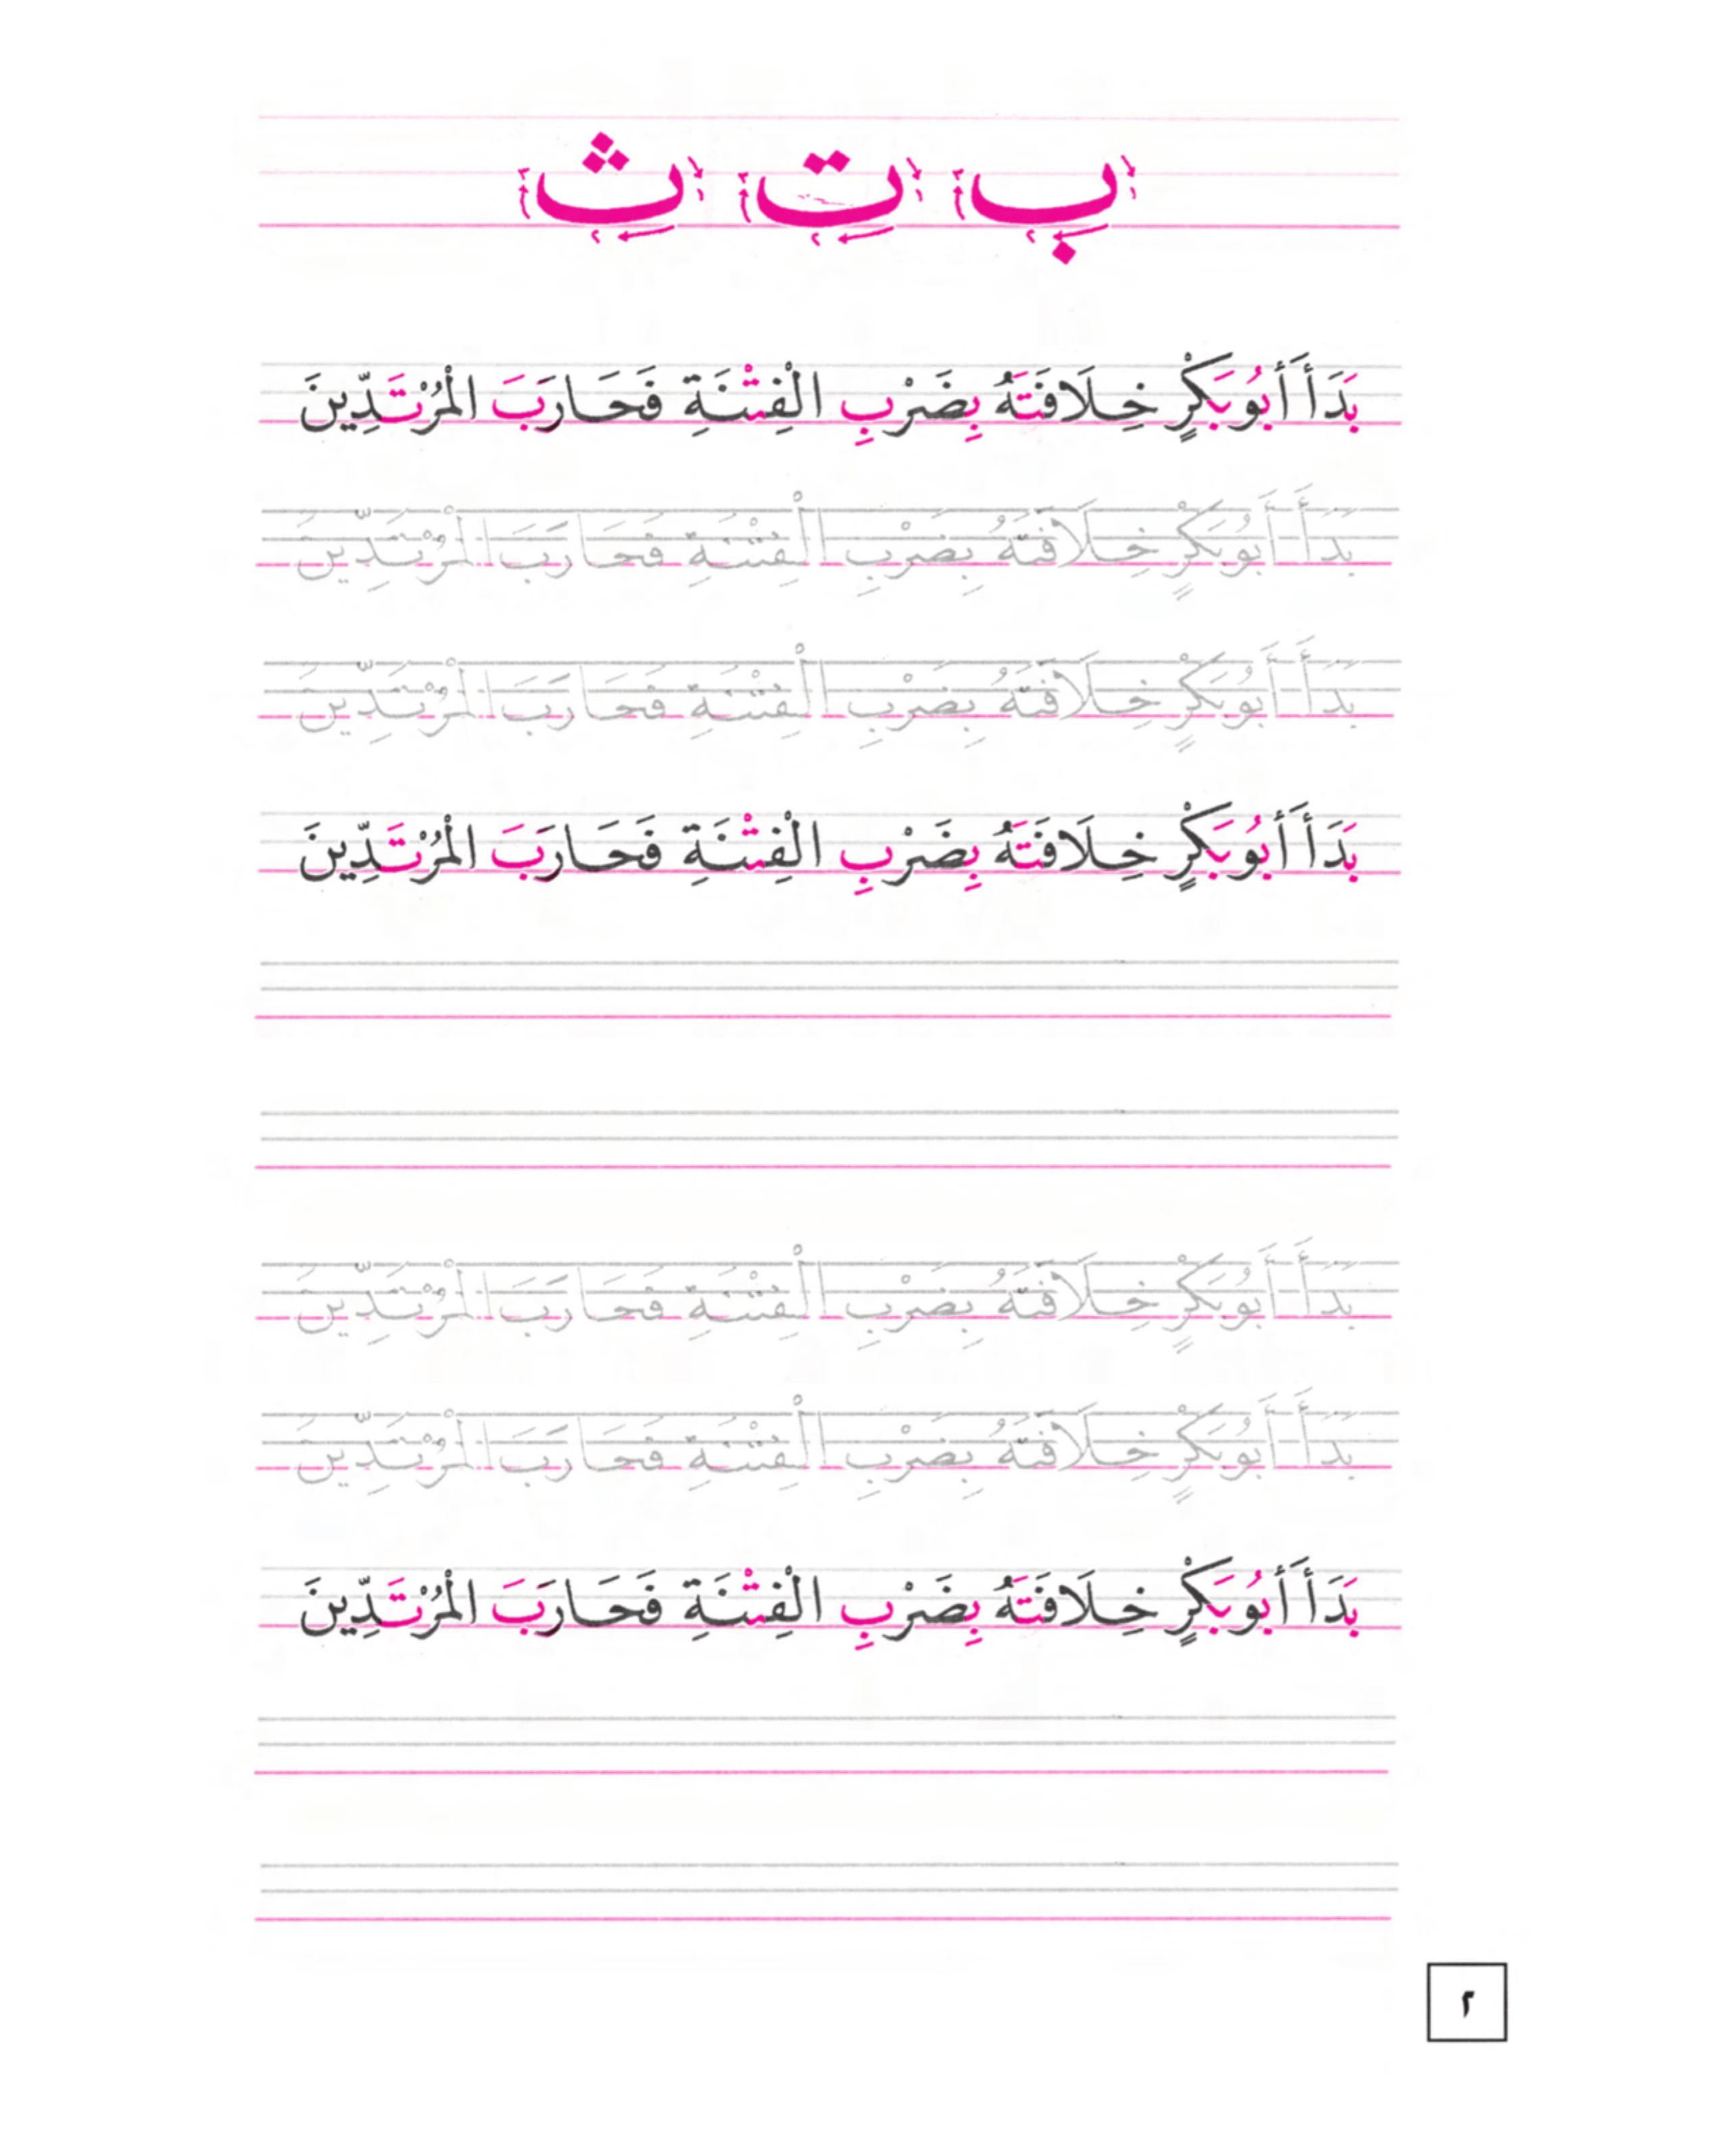 ب ت ث
بَدَأَ أَبُو بَكْرٍ خِلَافَتَهُ بِضَرْبِ الْفِتْنَةِ فَحَارَبَ الْمُرْتَدِّينَ
بَدَأَ أَبُو بَكْرٍ خِلَافَتَهُ بِضَرْبِ الْفِتْنَةِ فَحَارَبَ الْمُرْتَدِّينَ
بَدَأَ أَبُو بَكْرٍ خِلَافَتَهُ بِضَرْبِ الْفِتْنَةِ فَحَارَبَ الْمُرْتَدِّينَ
بَدَأَ أَبُو بَكْرٍ خِلَافَتَهُ بِضَرْبِ الْفِتْنَةِ فَحَارَبَ الْمُرْتَدِّينَ
بَدَأَ أَبُو بَكْرٍ خِلَافَتَهُ بِضَرْبِ الْفِتْنَةِ فَحَارَبَ الْمُرْتَدِّينَ
بَدَأَ أَبُو بَكْرٍ خِلَافَتَهُ بِضَرْبِ الْفِتْنَةِ فَحَارَبَ الْمُرْتَدِّينَ
بَدَأَ أَبُو بَكْرٍ خِلَافَتَهُ بِضَرْبِ الْفِتْنَةِ فَحَارَبَ الْمُرْتَدِّينَ
٢